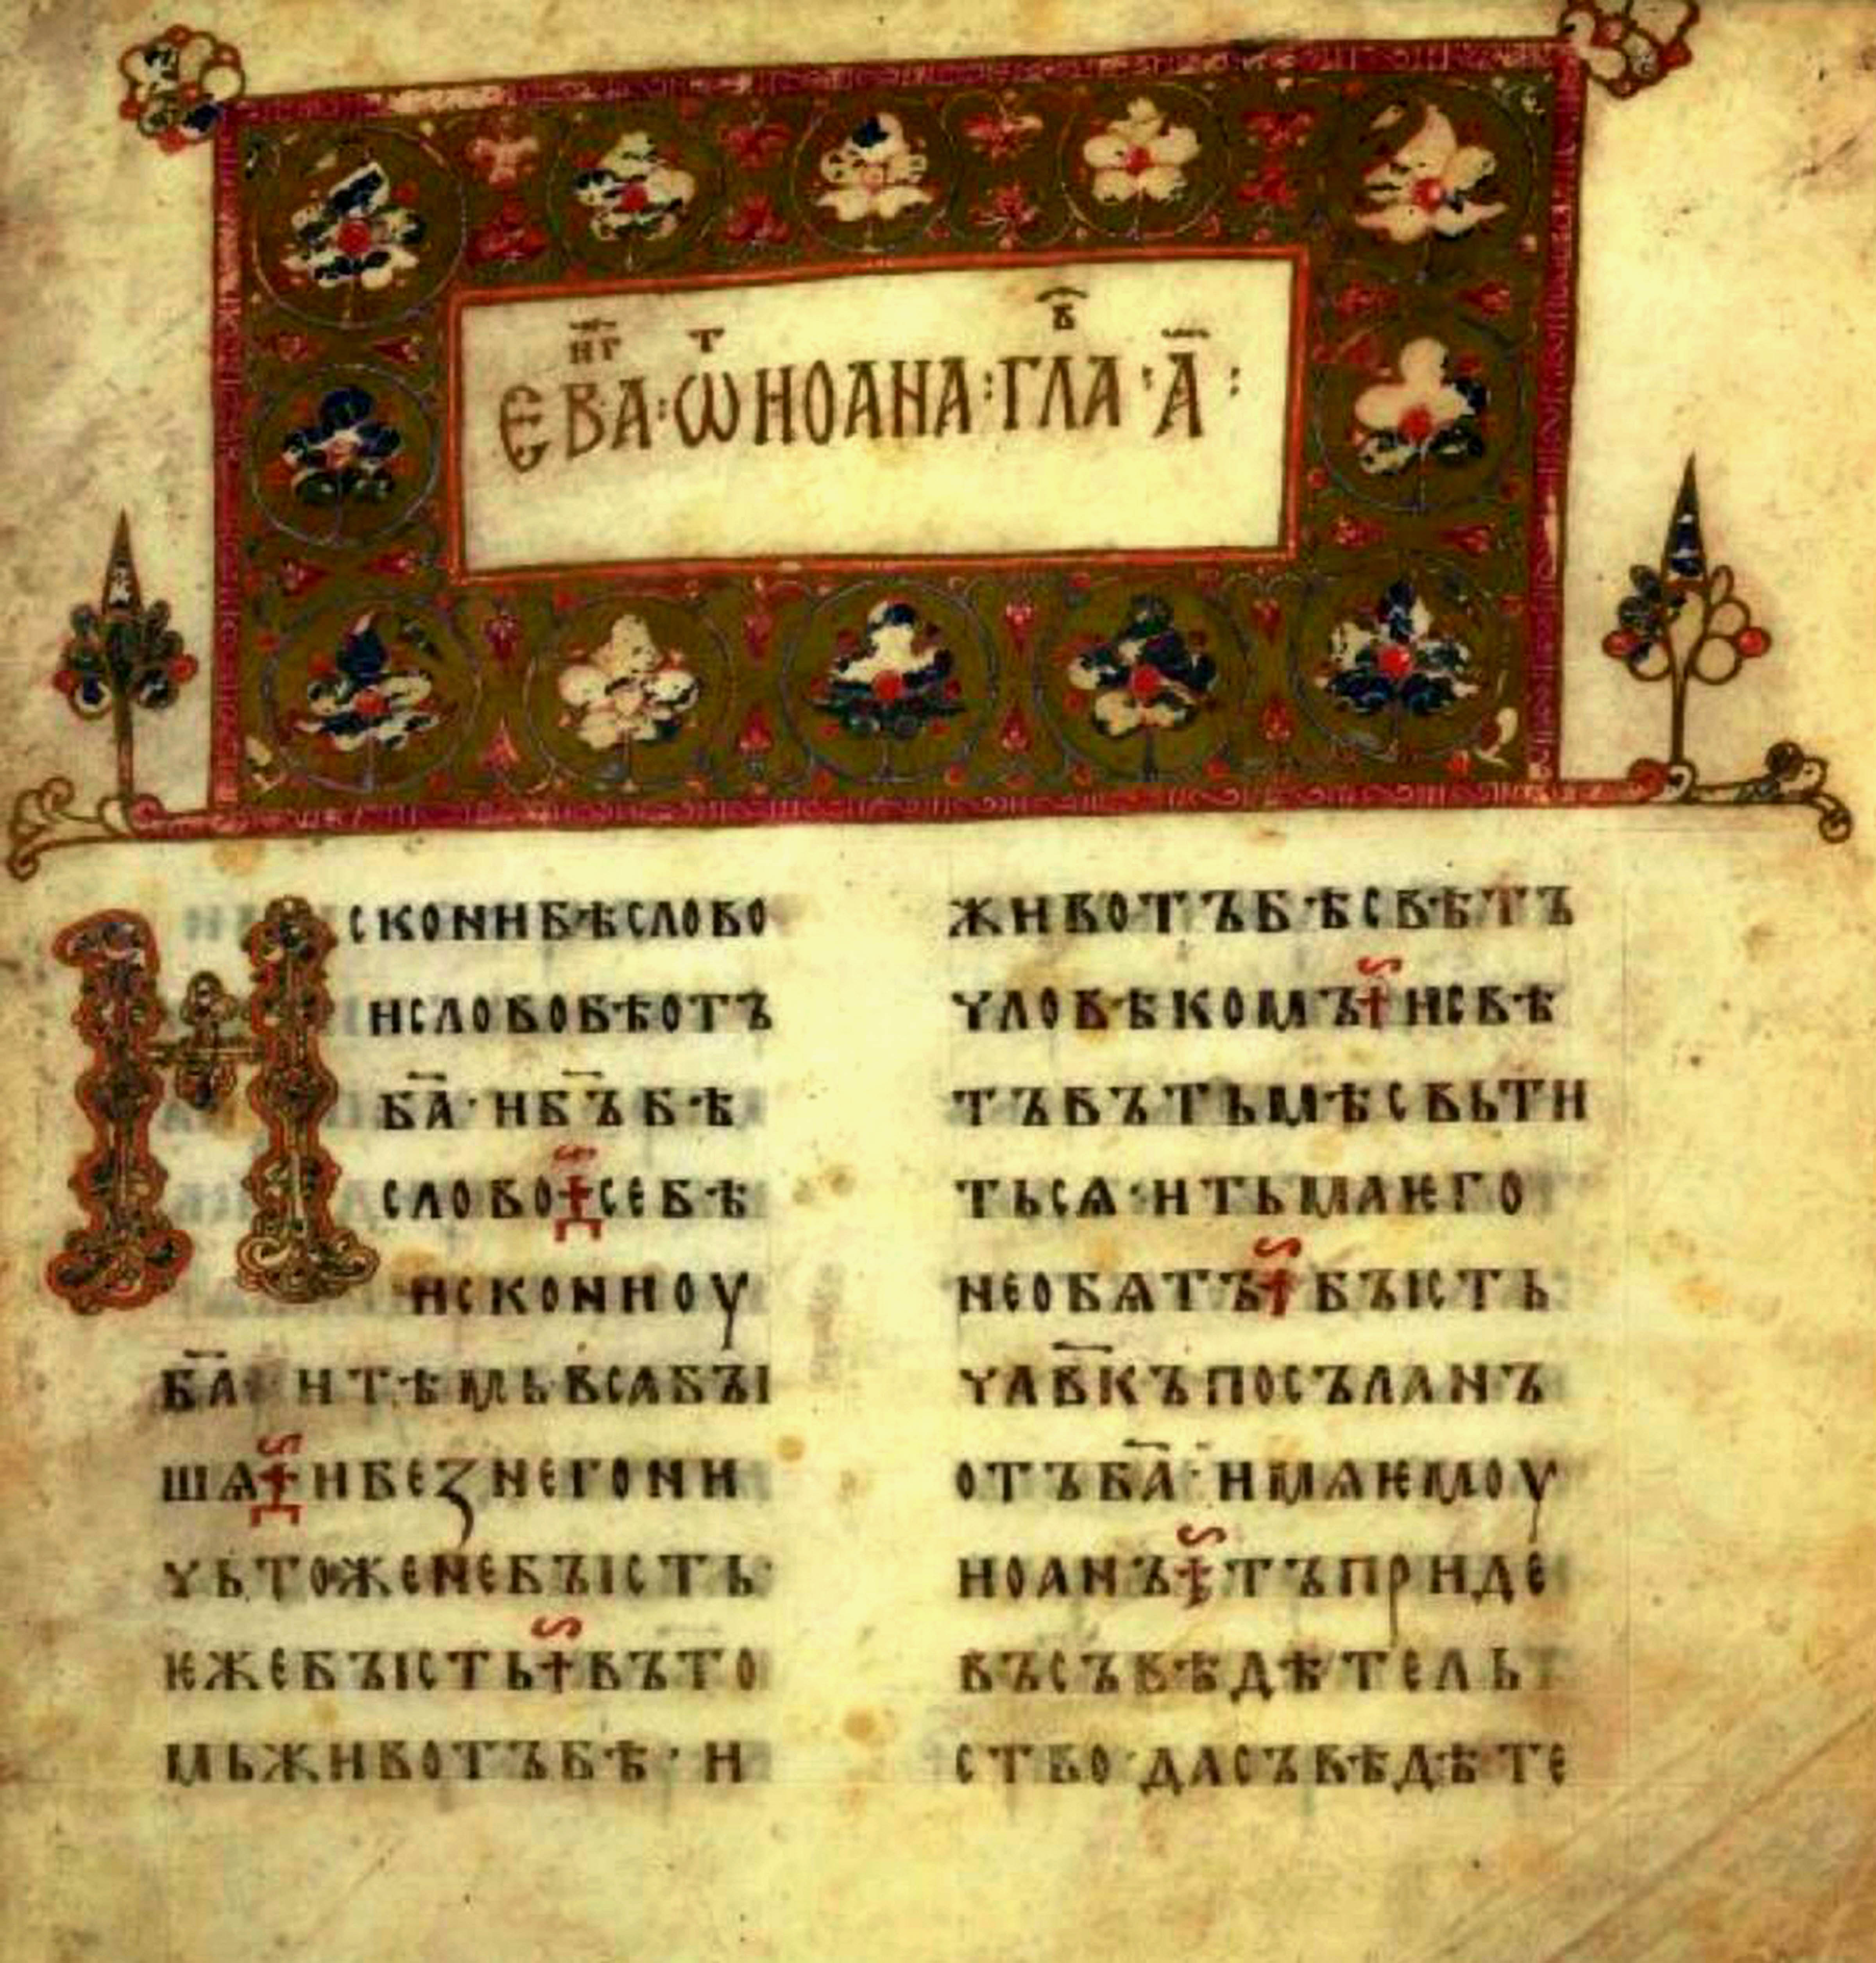 ЕВАНГ · ѾИОАНА · ГЛАВ · А҃ ·
Искони бѣ слово
и слово бѣ отъ
б҃а · и б҃ъ бѣ
слово се бѣ
искони оу
б҃а и тѣмь вся бꙑ
шѧ и без него ни
чьто же не бꙑсть ·
ѥже бꙑсть въ то
мь животъ бѣ · и
животъ бѣ свѣтъ
чловѣкомъ и свѣ
тъ въ тьмѣ свьти
тьсѧ · и тьма ѥго
не обѧтъ бꙑсть
чл҃вкъ посъланъ
отъ б҃а · имѧ ѥмоу
иоанъ тъ приде
въ съвѣдѣтель
ство · да съвѣдѣте